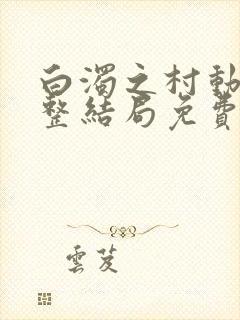 白濁之村動
整結局免費
雲芨